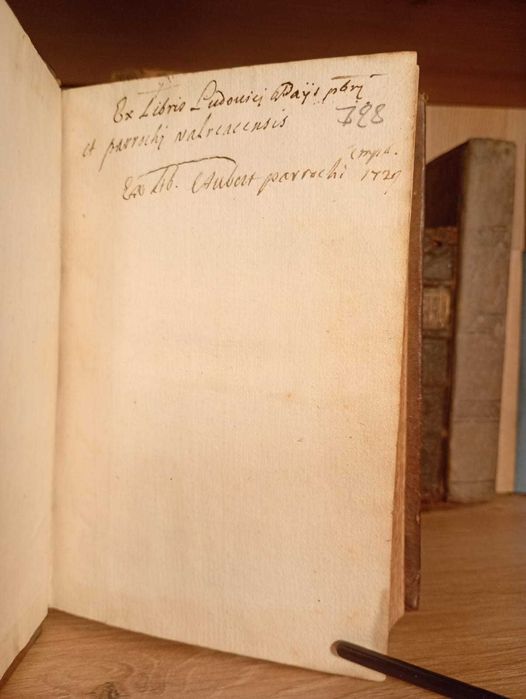 Ex Libris Ludovici Pays pbrj
798
et parrochj valreacensis
Ex Lib. Aubert parrochi empt. 1729